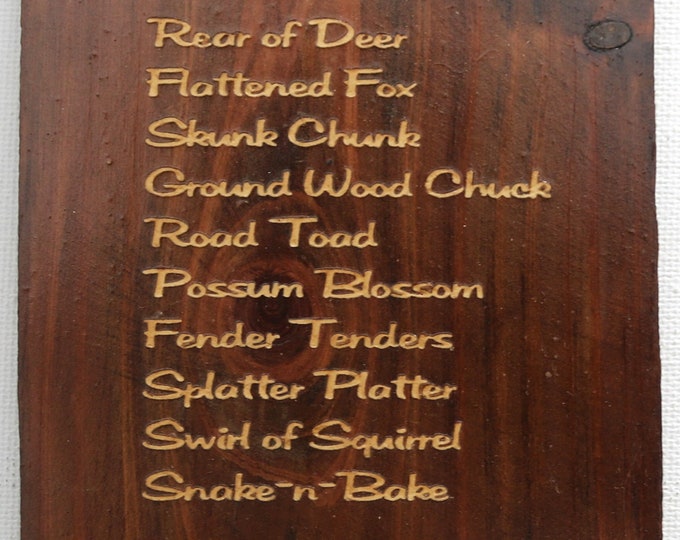 Rear of Deer
Flattened Fox
Skunk Chunk
Ground Wood Chuck
Road Toad
Possum Blossom
Fender Tenders
Splatter Platter
Swirl of Squirrel
Snake-n-Bake